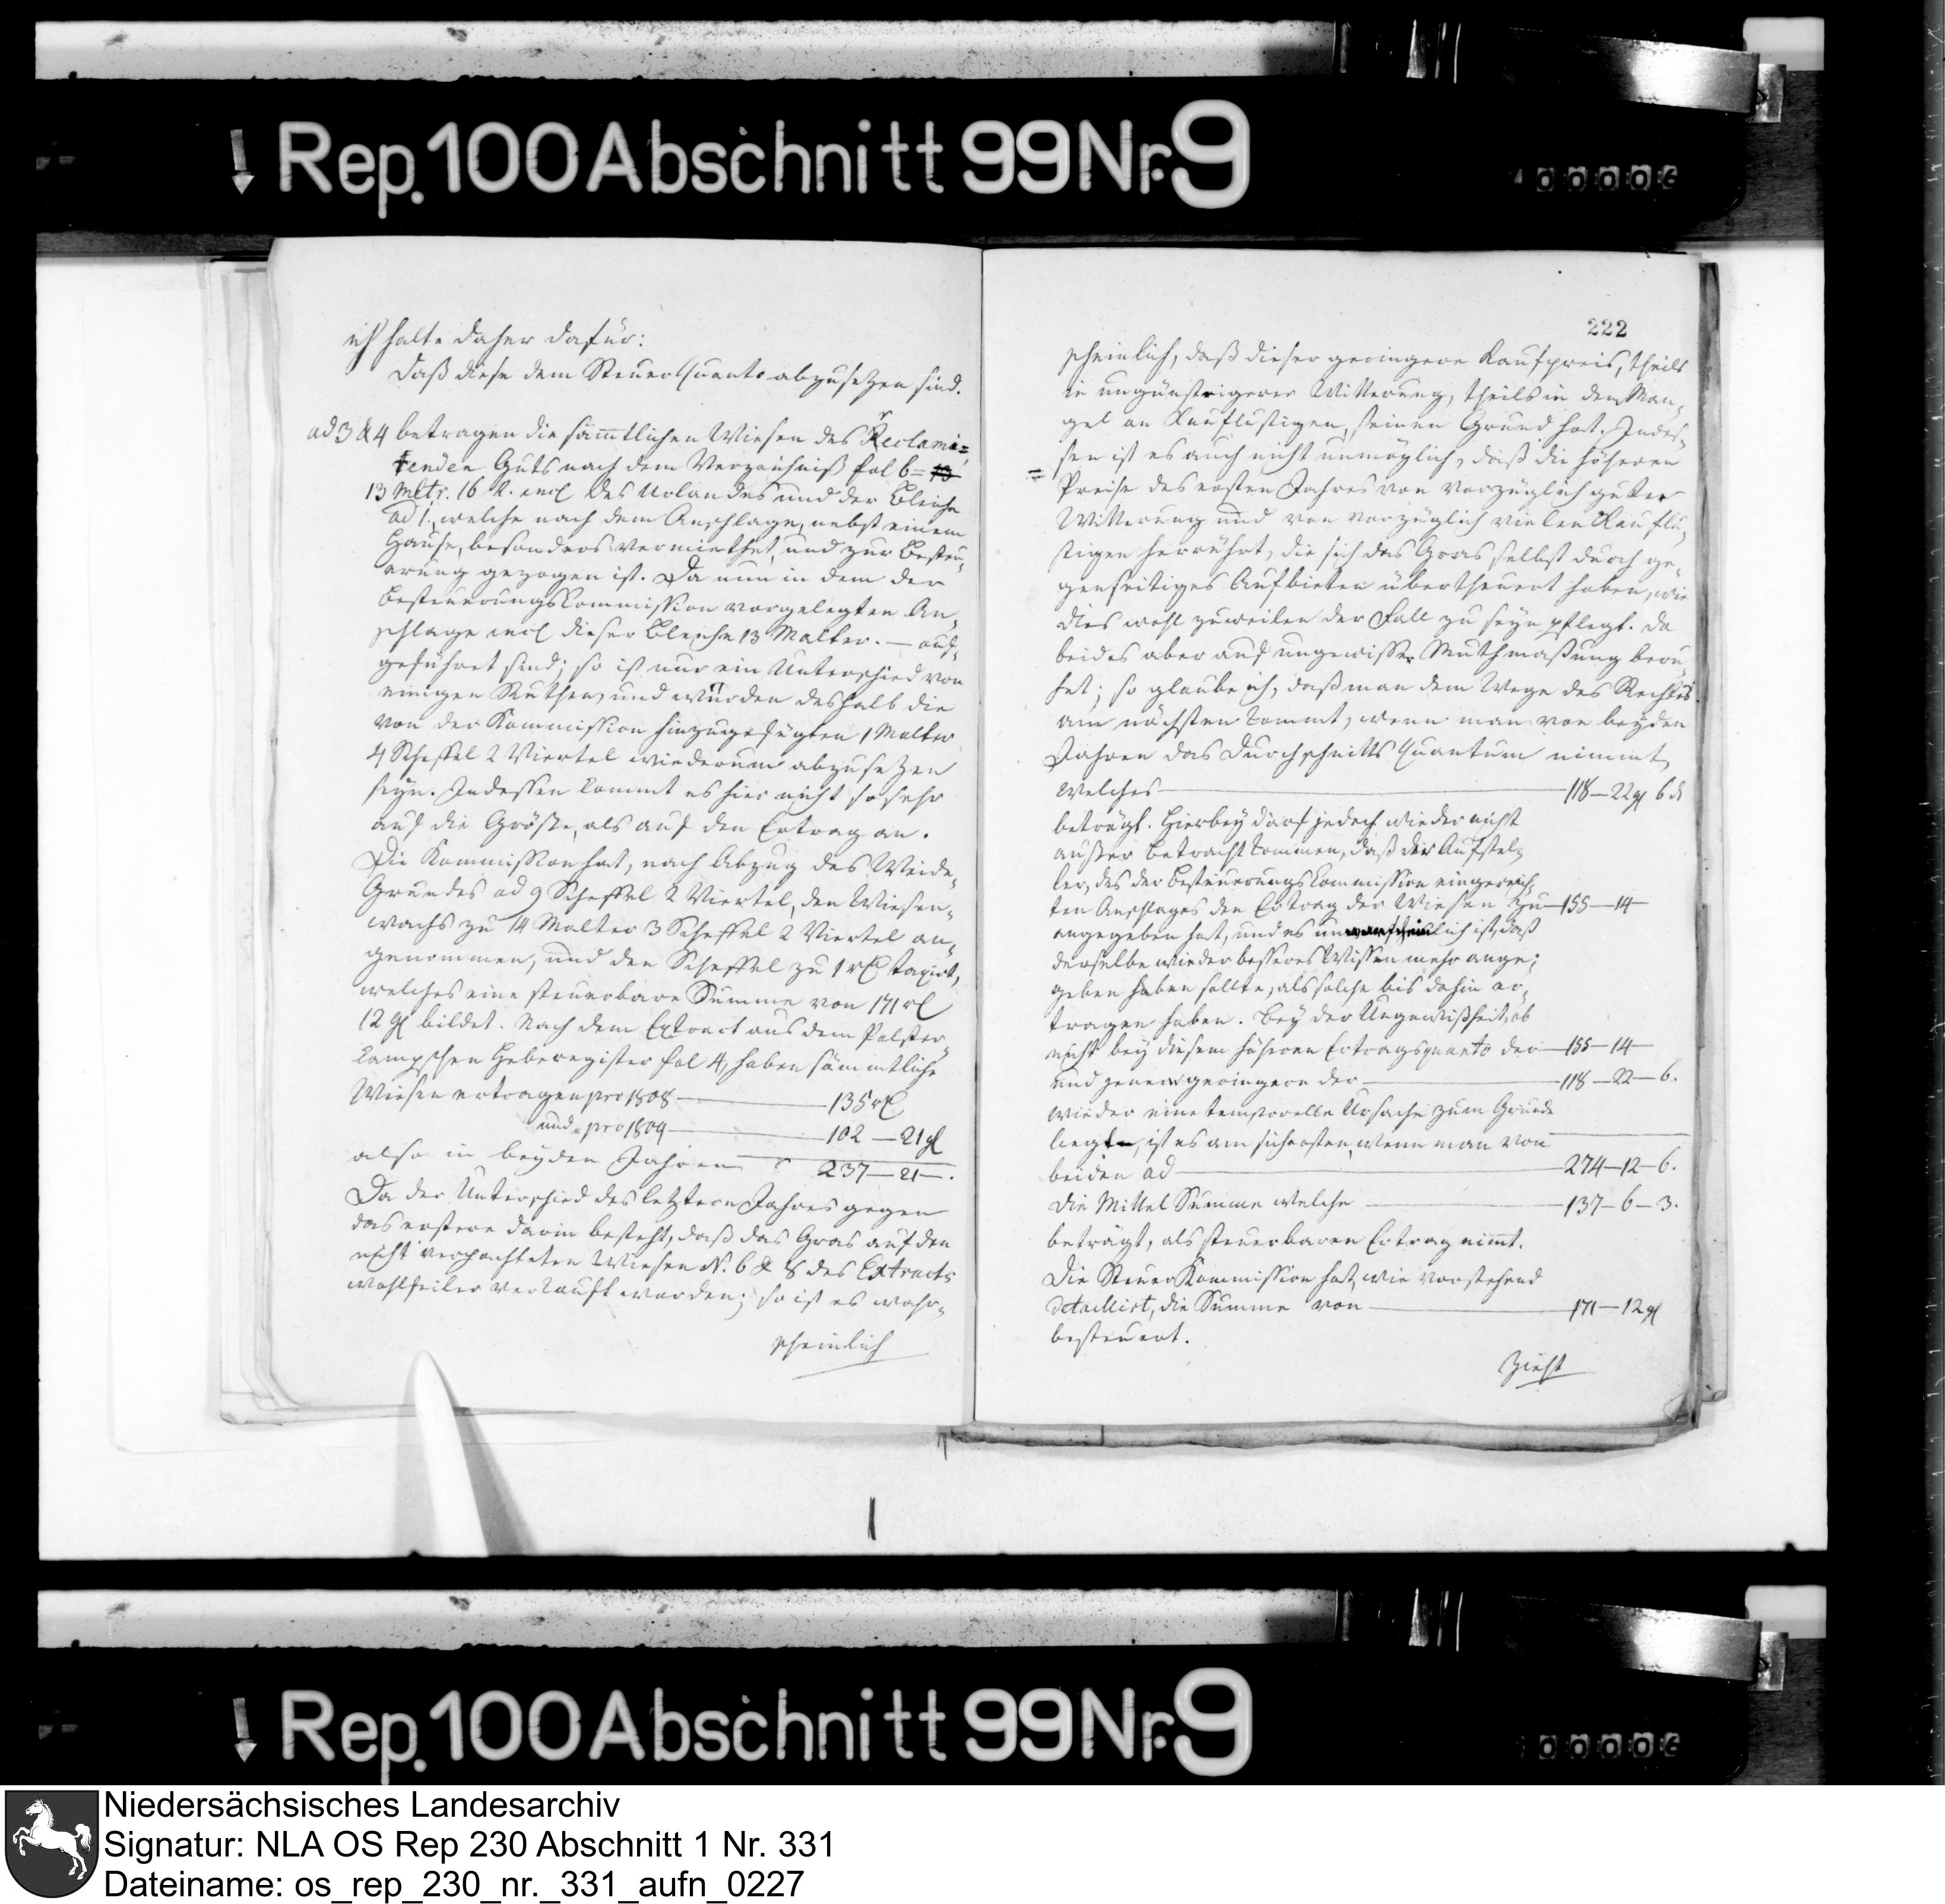 Rep. 100 Abschnitt 99 Nr. 9
ich halte daher dafür:
daß diese dem Steuer Quanto abzusetzen sind.
ad 3 & 4 betragen die sämtlichen Wiesen des Reclami=
renden Guts nach dem Verzeichniß fol 6=
13 Mltr. 16 R. incl des Uolandes und der Bleiche
ad 1, welche nach dem Anschlage, nebst einem
Hause, besonders vermiethet, und zur Besteu„
erung gezogen ist. Da nun in dem der
Besteuerungs Commission vorgelegten An„
schlage incl dieser Bleiche 13 Malter. — auf„
geführet sind; so ist nur ein Unterschied von
einigen Ruthen, und würden deshalb die
von der Kommission hinzugefügten 1 Malter
4 Scheffel 2 Viertel wiederum abzusetzen
seyn. Indessen kommt es hier nicht so sehr
auf die Größe, als auf den Ertrag an.
Die Kommission hat, nach Abzug des Weide„
Grundes ad 9 Scheffel 2 Viertel, den Wiesen„
wachs zu 14 Malter 3 Scheffel 2 Viertel an„
genommen, und den Scheffel zu 1 rl taxirt,
welches eine steuerbare Summe von 171 rl
12 gl bildet. Nach dem Extract aus dem Palster„
kampschen Heberegister fol 4, haben sämmtliche
Wiesen ertragen pro 1808 — 135 rl
und pro 1809 — 102 — 21 gl
also in beyden Jahren 237 — 21 — .
Da der Unterschied des letztern Jahres gegen
das erstere darin besteht, daß das Gras auf den
nicht verpachteten Wiesen N. 6 & 8 des Extracts
wohlfeiler verkauft worden; so ist es wahr„
scheinlich
222
scheinlich, daß dieser geringere Kaufpreis, theils
in ungünstigerer Witterung, theils in dem Man„
gel an Kauflustigen, seinen Grund hat. Indes„
sen ist es auch nicht unmöglich, daß die höheren
Preise des ersten Jahres von vorzüglich guter
Witterung und von vorzüglich vielen Kauflu„
stigen herrührt, die sich das Gras selbst durch ge„
genseitiges Aufbieten übertheuert haben, wie
dies wohl zuweilen der Fall zu seyn pflegt. Da
beides aber auf ungewisser Muthmaßung beru„
het; so glaube ich, daß man dem Wege des Rechtes
am nächsten kommt, wenn man von beyden
Jahren das Durchschnitts Quantum nimmt,
welches — 118 — 22 gl 6 d
beträgt. Hierbey darf jedoch wieder nicht
außer Betracht kommen, daß der Aufstel„
ler, des der Besteuerungs Commission eingereich„
ten Anschlages den Ertrag der Wiesen zu — 155 — 14 —
angegeben hat, und es unwarscheinlich ist, daß
derselbe wieder besseres Wissen mehr ange„
geben haben sollte, als solche bis dahin er„
tragen haben. Bey der Ungewißheit, ob
nicht bey diesem höheren Ertragsquanto der — 155 — 14 —
und jenem geringern der — 118 — 22 — 6.
wieder eine temporelle Ursache zum Grunde
liegt, ist es am sichersten, wenn man von
beiden ad — 274 — 12 — 6.
die Mittel Summe welche — 137 — 6 — 3.
beträgt, als steuerbaren Ertrag nimt.
Die Steuer Kommission hat, wie vorstehend
detaillirt, die Summe von — 171 — 12 gl
besteuert.
Zieht
Rep. 100 Abschnitt 99 Nr. 9
Niedersächsisches Landesarchiv
Signatur: NLA OS Rep 230 Abschnitt 1 Nr. 331
Dateiname: os_rep_230_nr._331_aufn_0227